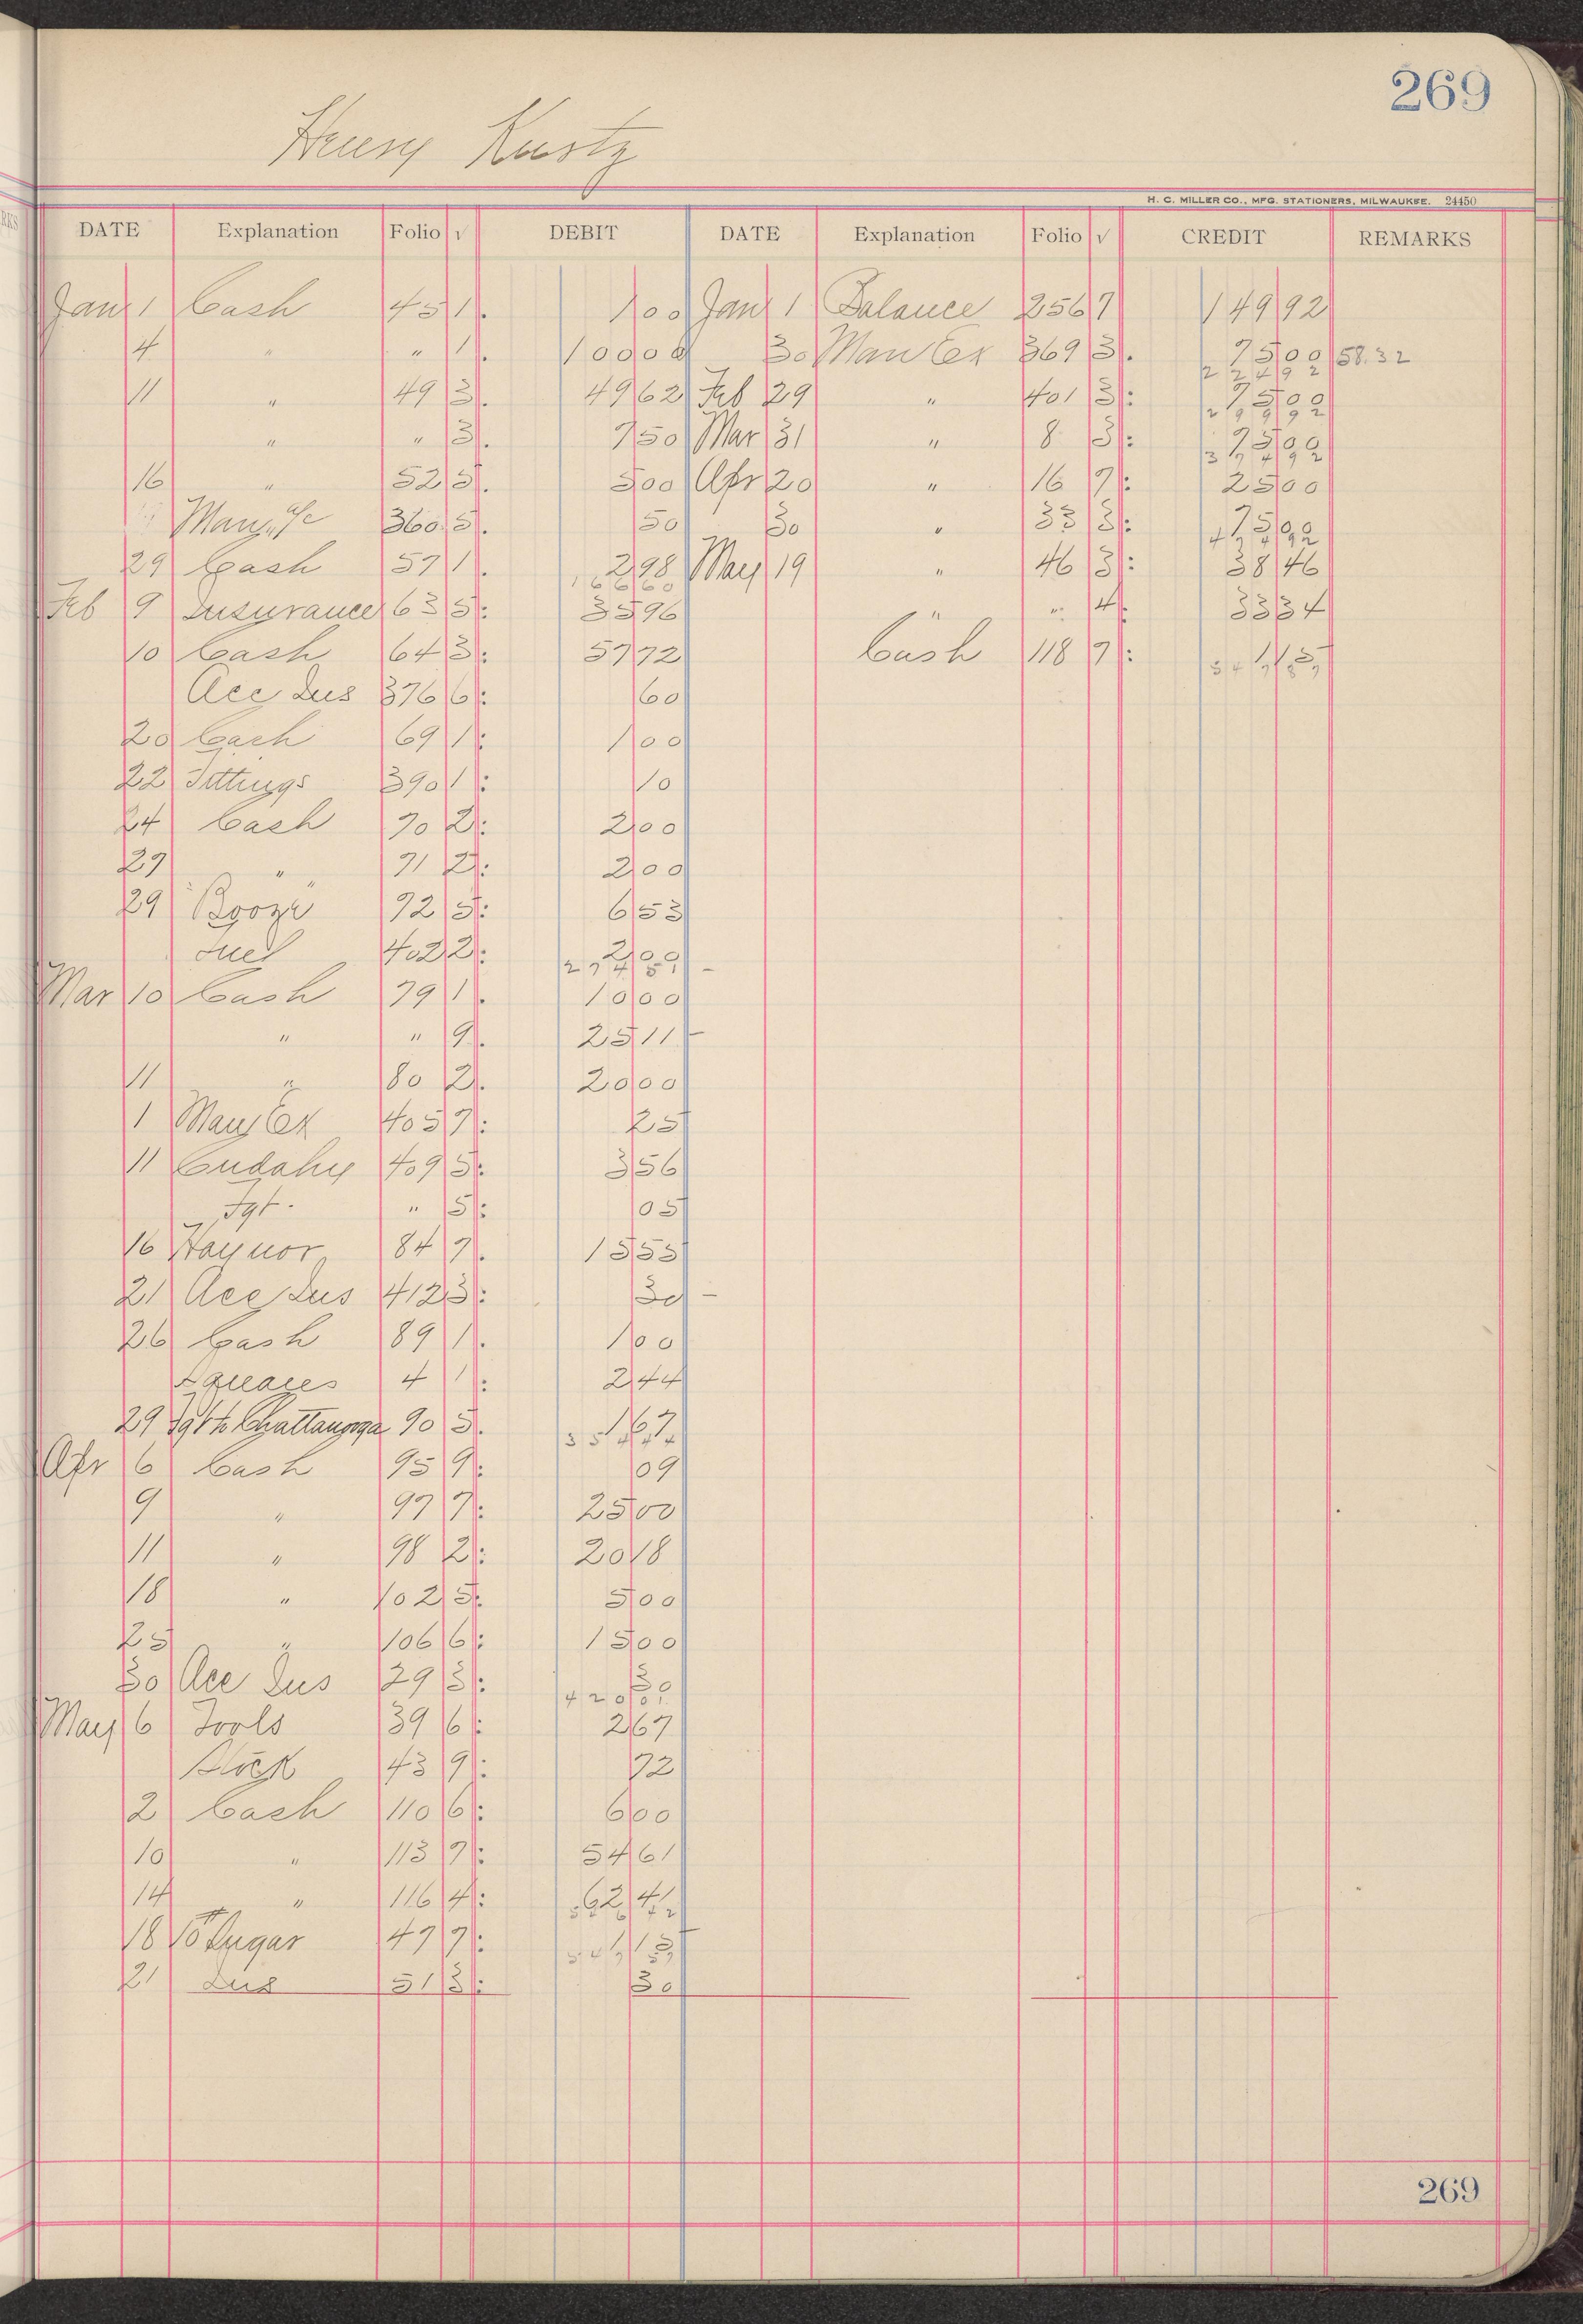 269
Henry Kustz
H. C. MILLER CO., MFG. STATIONERS, MILWAUKEE. 24450
DATE Explanation Folio √ DEBIT DATE Explanation Folio √ CREDIT REMARKS
Jany 1 Cash 45 1 1 00 Jany 1 Balance 256 7 149 92
4 " " 1 100 00 30 Man Ex 369 3 75 00 58.32
11 " 49 3 49 62 Feb 29 " 401 3 75 00
" " 3 7 50 Mar 31 " 8 3 75 00
16 " 52 5 5 00 Apr 20 " 16 7 25 00
360 5 50 30 " 33 3 75 00
29 Cash 57 1 2 98 May 19 " 46 3 38 46
Feb 9 Insurance 63 5 35 96 " " 4 33 34
10 Cash 64 3 57 72 Cash 118 7
Acc Dus 376 6 60
20 Cash 69 1 1 00
22 Fittings 390 1 10
24 Cash 70 2 2 00
27 " 71 2 2 00
29 Booze 72 5 6 53
Fuel 402 2 2 00
Mar 10 Cash 79 1 10 00
" " 9 25 11
11 " 80 2 20 00
1 Man Ex 405 7 25
11 Cudahy 409 5 3 56
Fgt. " 5 05
16 Haynor 84 7 15 55
21 Acc Dus 412 3 30
26 Cash 89 1 1 00
Squares 4 1 2 44
29 Fgt to Chattanooga 90 5 1 67
Apr 6 Cash 95 9 09
9 " 97 7 25 00
11 " 98 2 20 18
18 " 102 5 5 00
25 " 106 6 15 00
30 Acc Dus 29 3 30
May 6 Tools 39 6 2 67
43 9 72
2 Cash 110 6 6 00
10 " 113 7 54 61
14 " 116 4 62 41
18 Sugar 47 7
21 Dus 51 3 30
269